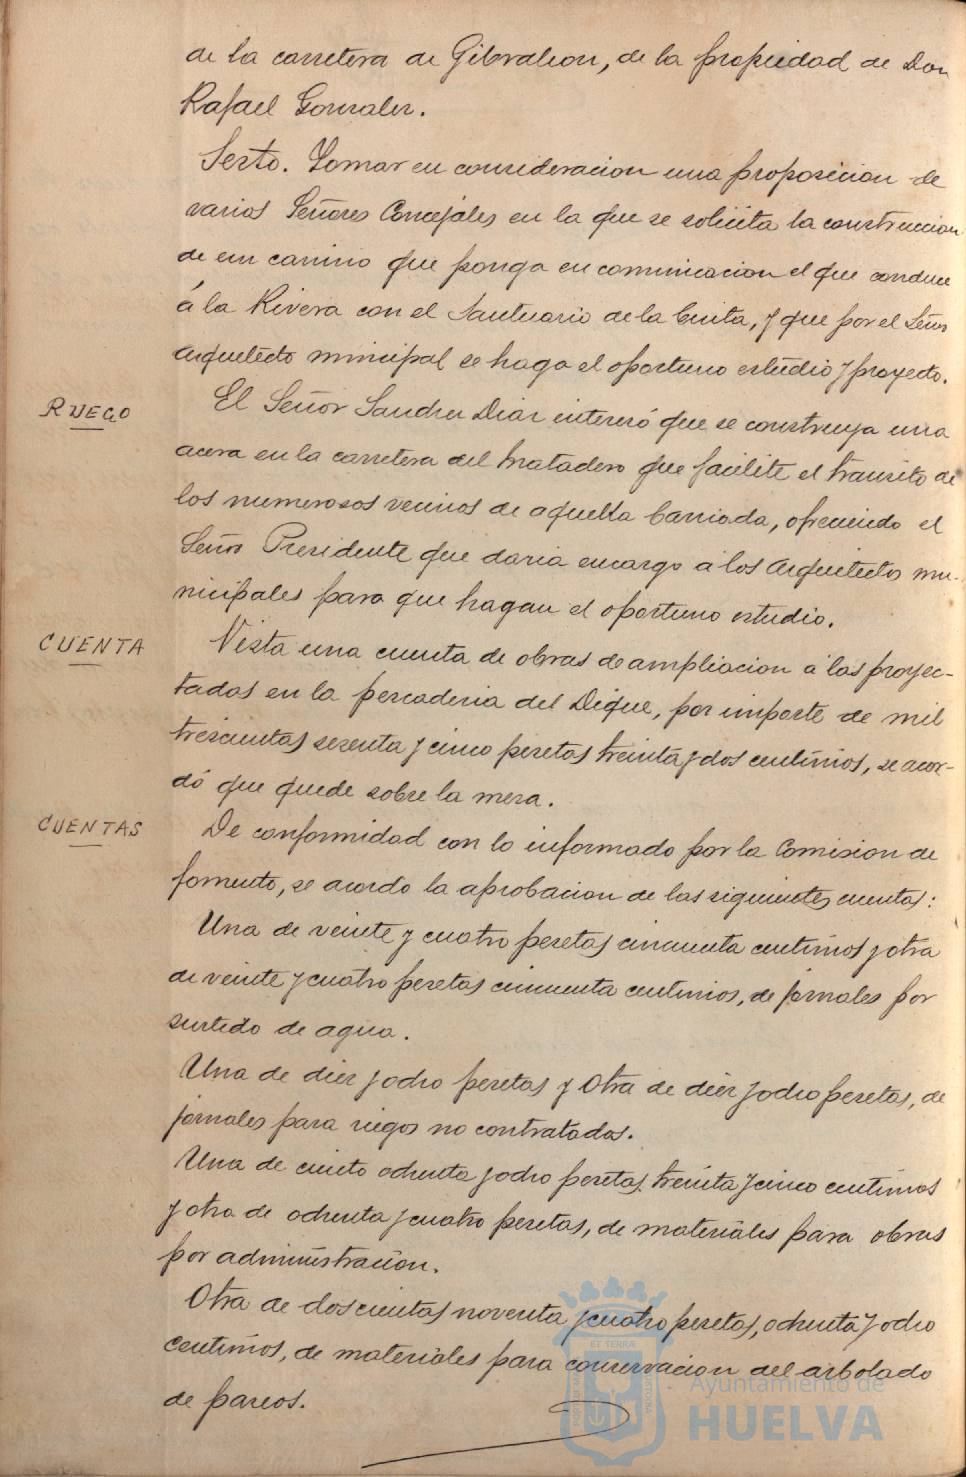 de la carretera de Gibraleon, de la propiedad de Don
Rafael Gonzalez.
Sexto. Tomar en consideracion una proposicion de
varios Señores Concejales en la que se solicita la construccion
de un camino que ponga en comunicacion el que conduce
á la Rivera con el Santuario de la Cinta, y que por el Señor
Arquitecto municipal se haga el oportuno estudio y proyecto.
RUEGO
El Señor Sanchez Diaz interesó que se construya una
acera en la carretera del Matadero que facilite el transito de
los numerosos vecinos de aquella barriada, ofreciendo el
Señor Presidente que daria encargo a los Arquitectos mu-
nicipales para que hagan el oportuno estudio.
CUENTA
Vista una cuenta de obras de ampliacion a las proyec-
tadas en la pescaderia del Dique, por importe de mil
trescientas sesenta y cinco pesetas treinta y dos centimos, se acor-
dó que quede sobre la mesa.
CUENTAS
De conformidad con lo informado por la Comision de
fomento, se acordo la aprobacion de las siguientes cuentas:
Una de veinte y cuatro pesetas cincuenta centimos y otra
de veinte y cuatro pesetas cincuenta centimos, de jornales por
surtido de agua.
Una de diez y ocho pesetas y otra de diez y ocho pesetas, de
jornales para riegos no contratados.
Una de ciento ochenta y ocho pesetas treinta y cinco centimos
y otra de ochenta y cuatro pesetas, de materiales para obras
por administracion.
Otra de doscientas noventa y cuatro pesetas, ochenta y ocho
centimos, de materiales para conservacion del arbolado
de paseos.
ET TERRÆ
Ayuntamiento de
HUELVA